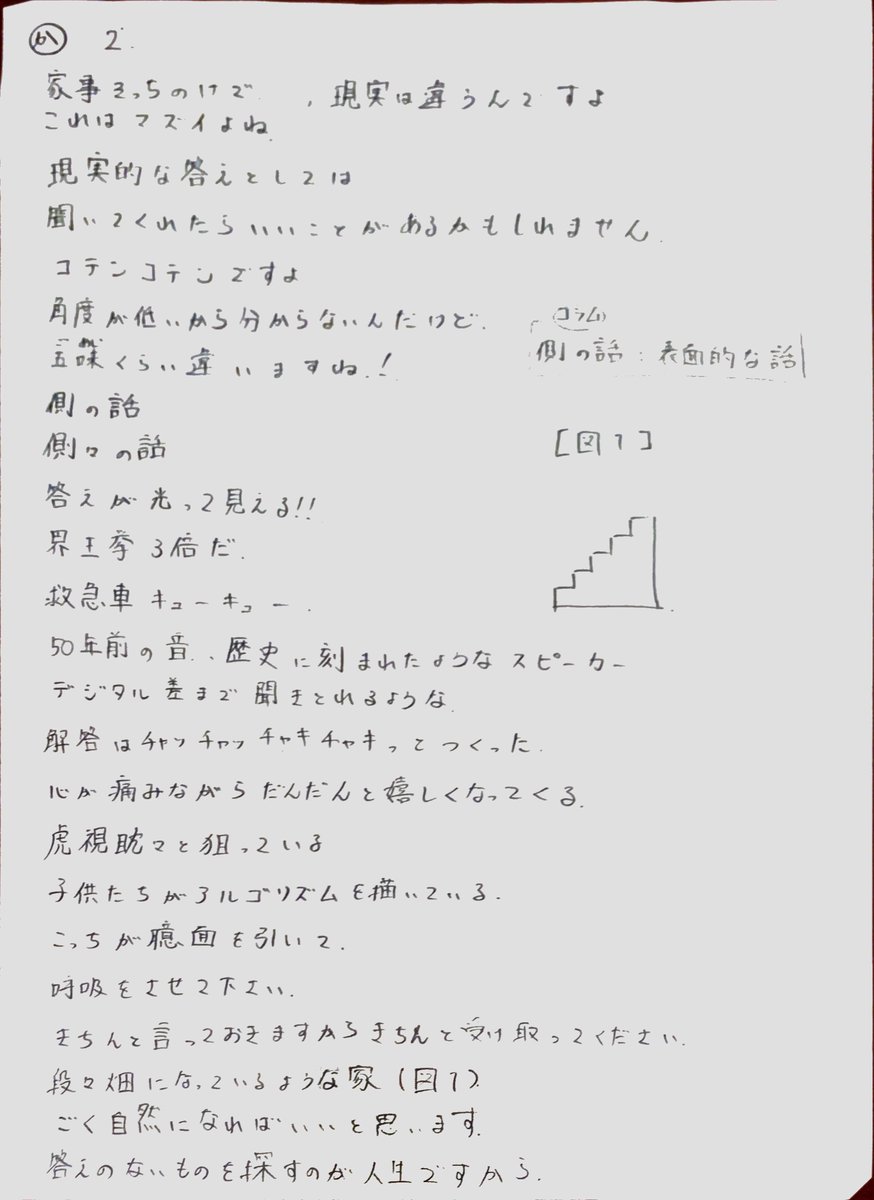 2.
家事そっちのけで、現実は違うんですよ
これはマズイよね
現実的な答えとしては
聞いてくれたらいいことがあるかもしれません.
コテンコテンですよ
角度が低いから分からないんだけど.
コラム
五味くらい違いますね.!
側の話:表面的な話
側の話
側々の話
[図1]
答えが光って見える!!
界王拳3倍だ.
救急車キューキュー.
50年前の音、歴史に刻まれたようなスピーカー
デジタル差まで聞きとれるような.
解答はチャッチャッチャキチャキってつくった.
心が痛みながらだんだんと嬉しくなってくる.
虎視眈々と狙っている
子供たちがアルゴリズムを描いている.
こっちが臆面を引いて.
呼吸をさせて下さい.
きちんと言っておきますからきちんと受け取ってください.
段々畑になっているような家(図1)
ごく自然になればいいと思います.
答えのないものを探すのが人生ですから.